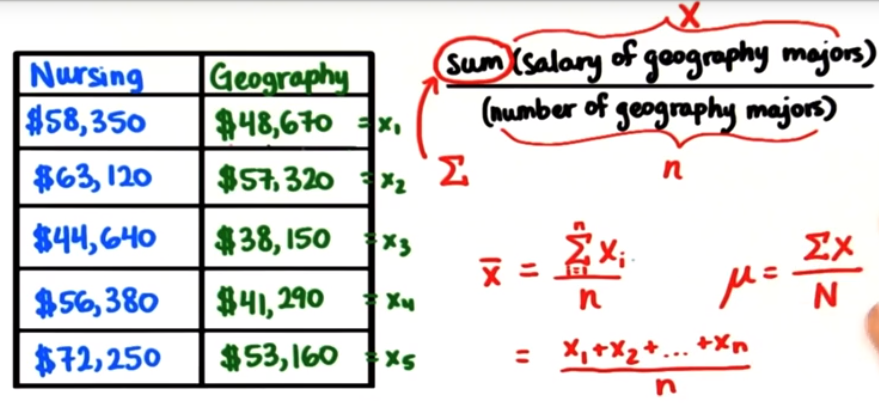 Nursing Geography
$58,350 $48,670 = x₁
$63,120 $57,320 = x₂
$44,640 $38,150 = x₃
$56,380 $41,290 = x₄
$72,250 $53,160 = x₅
X
Sum (Salary of geography majors)
(number of geography majors)
Σ n
x̄ = Σⁿᵢ₌₁ xᵢ / n
μ = ΣX / N
= x₁+x₂+...+xₙ / n